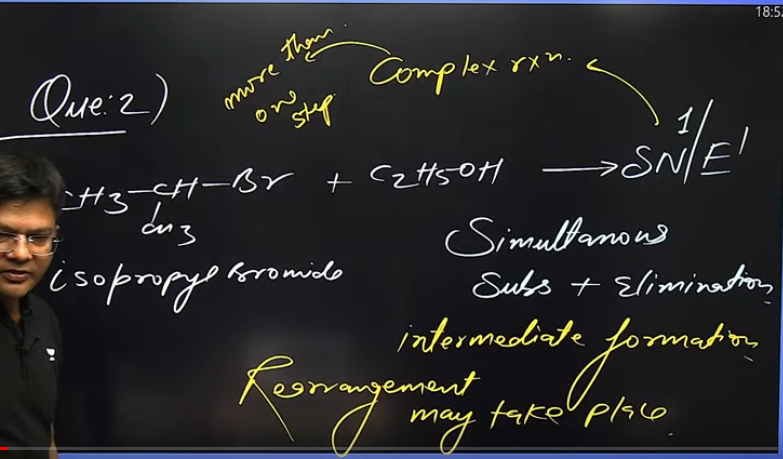 18:5
more than
one
step
Complex rxn.
Que: 2)
CH3-CH-Br + C2H5OH → SN1/E1
CH3
isopropyl Bromide
Simultanous
Subs + Elimination
intermediate formation
Rearrangement
may take place.